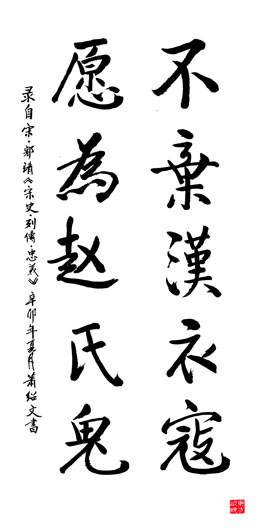 不棄漢衣寇
愿為赵氏鬼
录自宋·鄒靖《宋史·列傳·忠义》辛卯年夏月萧绍文書